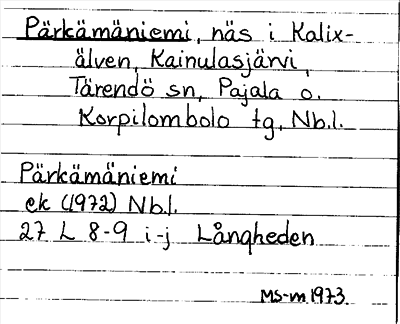 Pärkämäniemi, näs i Kalix-
älven, Kainulasjärvi,
Tärendö sn, Pajala o.
Korpilombolo tg, Nb.l.
Pärkämäniemi
ek (1972) Nb.l.
27 L 8-9 i-j Långheden
MS-m 1973.